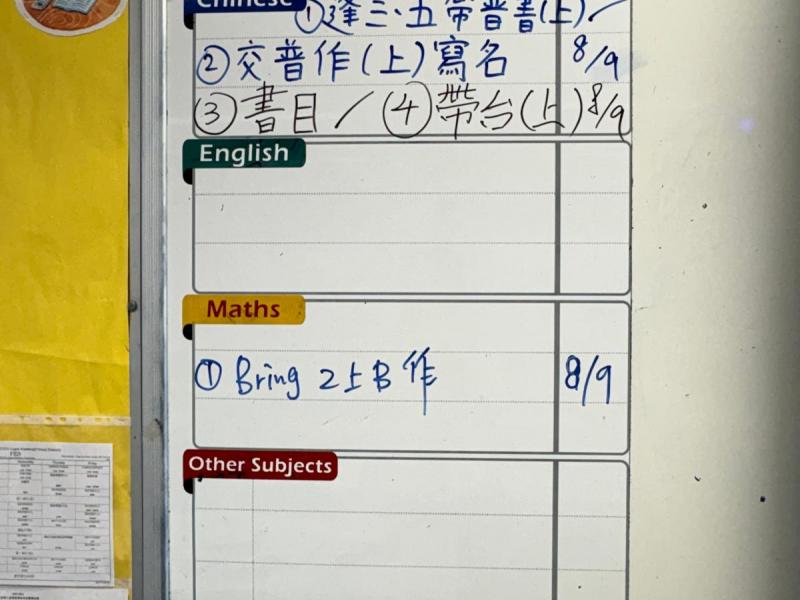 Chinese
①逢三、五帶普書(上)／
②交普作(上)寫名 8/9
③書目／ ④帶台(上) 8/9
English
Maths
① Bring 2上B 作 8/9
Other Subjects